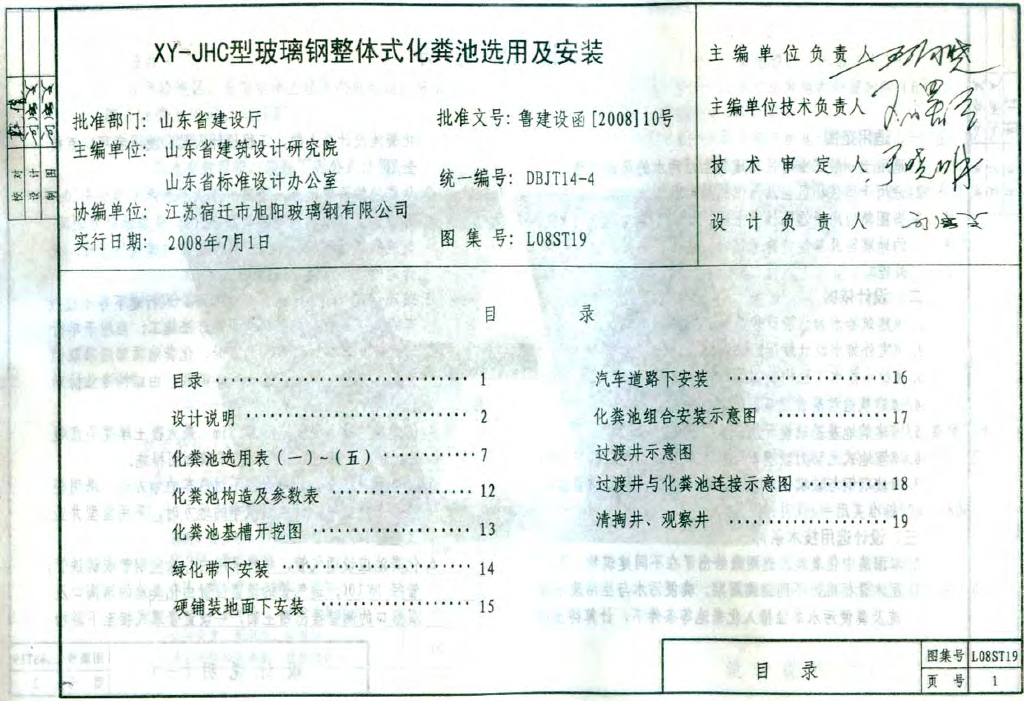 XY-JHC型玻璃钢整体式化粪池选用及安装
批准部门: 山东省建设厅
批准文号: 鲁建设函[2008]10号
主编单位: 山东省建筑设计研究院
山东省标准设计办公室
统一编号: DBJT14-4
协编单位: 江苏宿迁市旭阳玻璃钢有限公司
实行日期: 2008年7月1日
图集号: L08ST19
主编单位负责人
主编单位技术负责人
技术审定人
设计负责人
校对
设计
制图
目 录
目录 1
设计说明 2
化粪池选用表(一)~(五) 7
化粪池构造及参数表 12
化粪池基槽开挖图 13
绿化带下安装 14
硬铺装地面下安装 15
汽车道路下安装 16
化粪池组合安装示意图 17
过渡井示意图
过渡井与化粪池连接示意图 18
清掏井、观察井 19
目 录
图集号 L08ST19
页 号 1